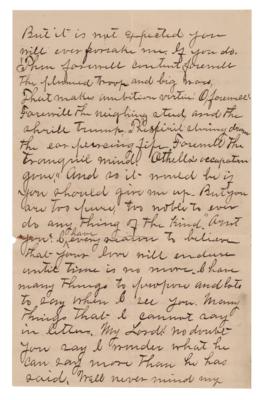 But it is not expected you
will ever forsake me. If you do.
Then farewell content farewell
the plumed troop and big wars,
That makes ambition virtue O farewell
Farewell the neighing steed and the
shrill trump, The spirit stirring drum
the ear piercing fife Farewell the
tranquil mind, Othello's occupation
gone," And so it would be if
you should give me up. But you
are too pure, too noble to ever
do any thing of the kind, Arnt
you? I have every reason to believe
that your love will endure
until time is no more. I have
many things to propose and lots
to say when I see you. Many
things that I cannot say
in letters. My Lord! no doubt
you say I wonder what he
can say more than he has
said. Well never mind my